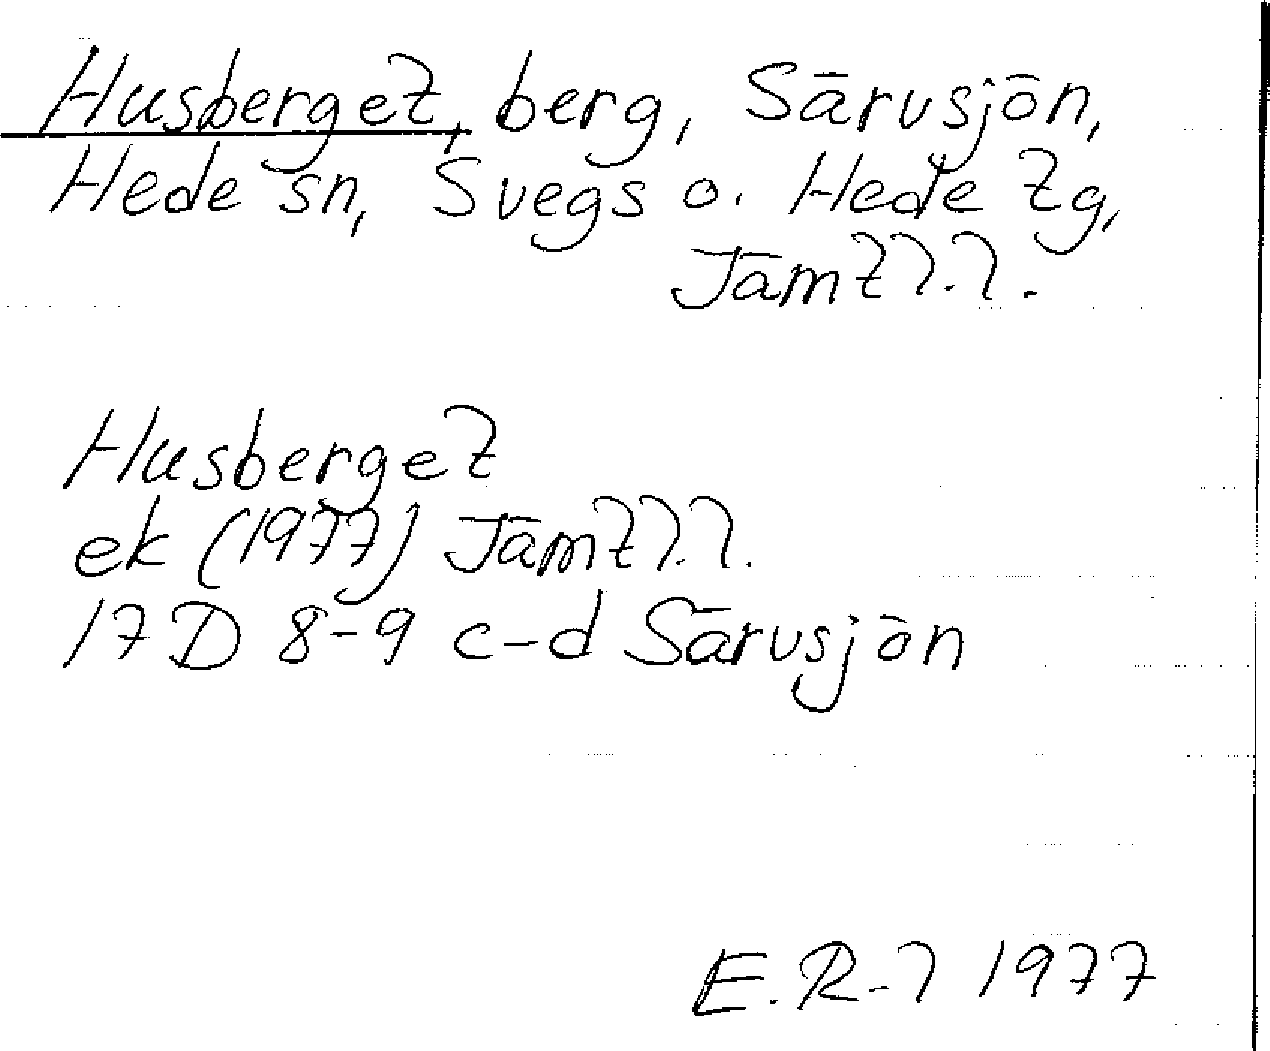 Husberget, berg, Särvsjön,
Hede sn, Svegs o. Hede tg,
Jämtl.l.
Husberget
ek (1977) Jämtl.l.
17D 8-9 c-d Särvsjön
E.R-l 1977